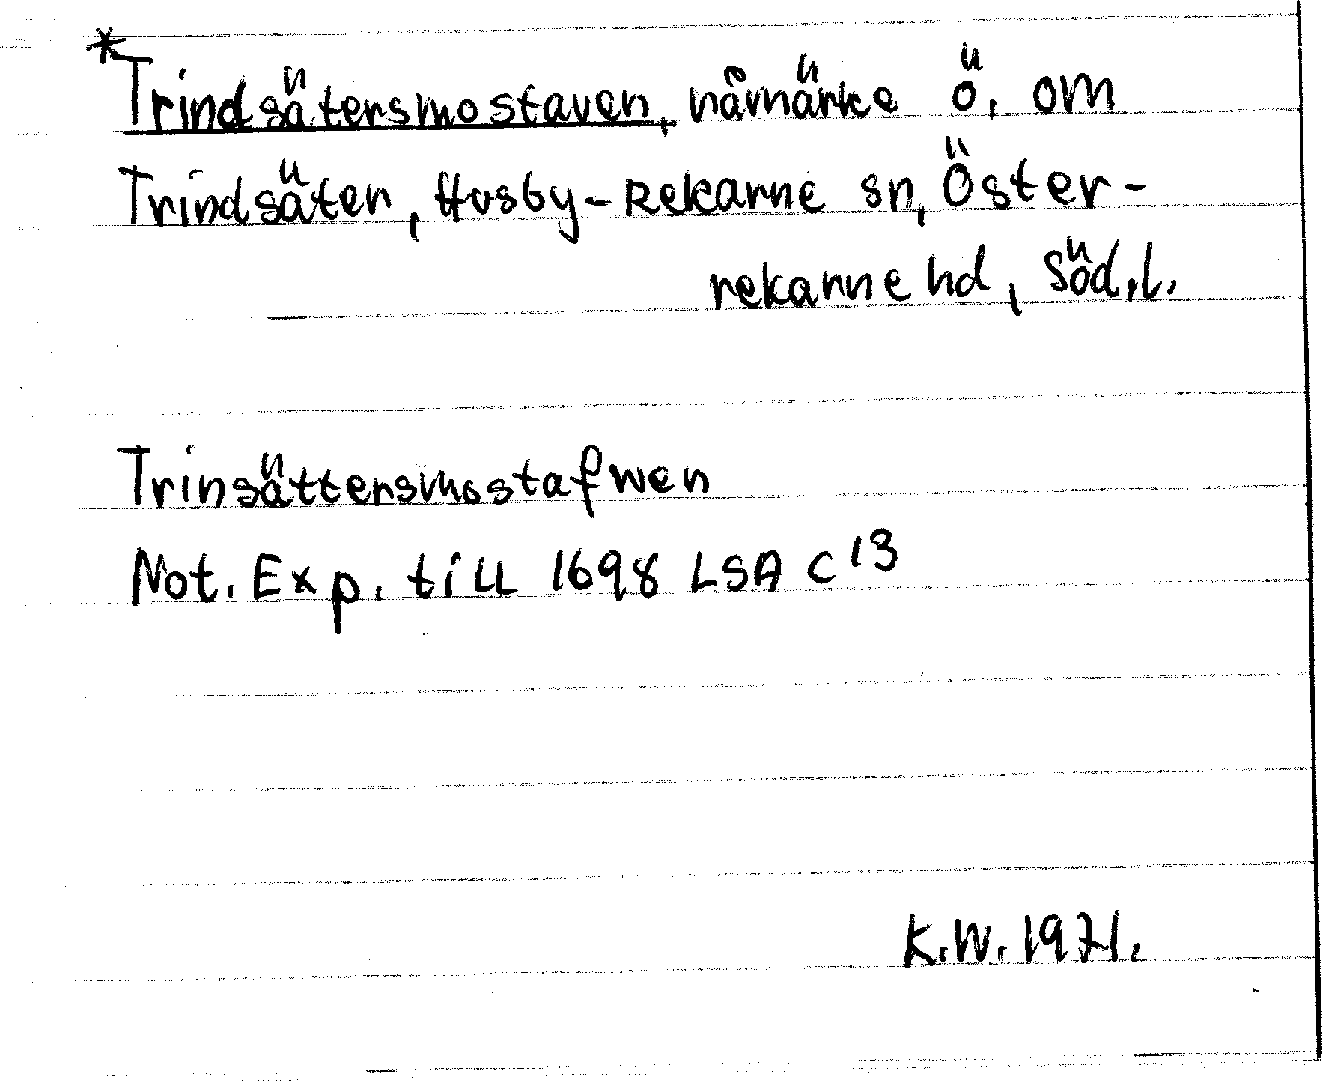 *Trindsätersmostaven, råmärke ö. om
Trindsäter, Husby-Rekarne sn, Öster-
rekarne hd, Söd.l.
Trinsättersmostafwen
Not. Exp. till 1698 LSA C 13
K.W. 1971.